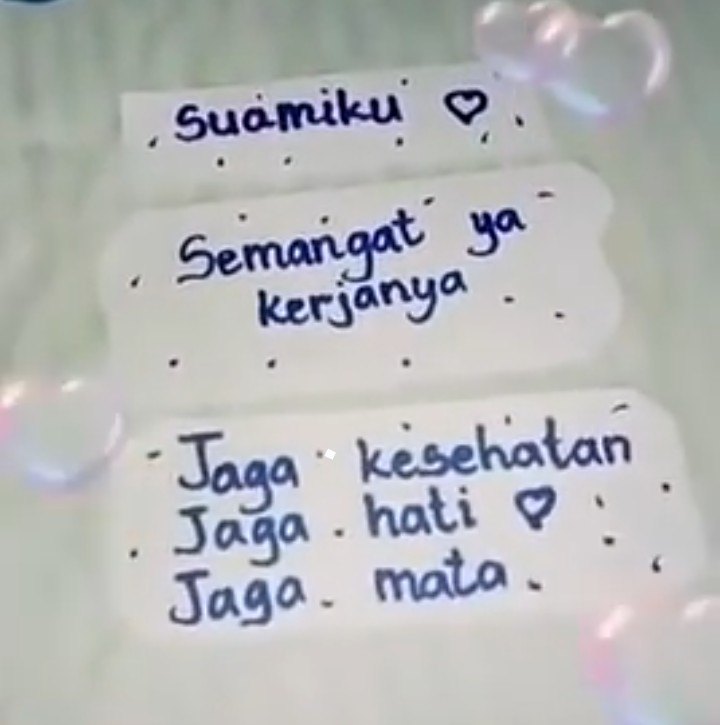 Suamiku ♡
Semangat ya
kerjanya
Jaga kesehatan
Jaga hati ♡
Jaga mata